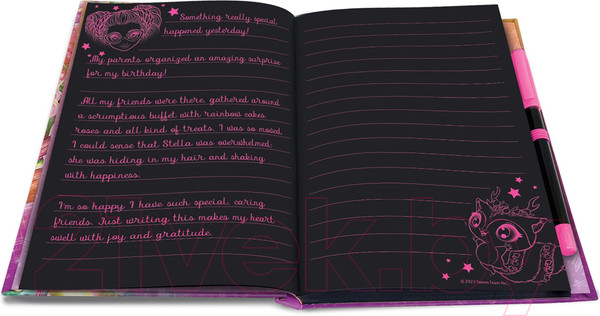 Something really special
happened yesterday!
My parents organized an amazing surprise
for my birthday!
All my friends were there, gathered around
a scrumptious buffet with rainbow cakes,
roses and all kind of treats. I was so moved,
I could sense that Stella was overwhelmed;
she was hiding in my hair and shaking
with happiness.
I'm so happy I have such special, caring
friends. Just writing this makes my heart
swell with joy and gratitude.
© 2021 Tarwin Team Inc.
21vek.by